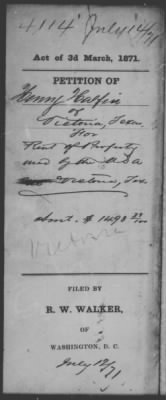 4114 July 14/71
Act of 3d March, 1871.
PETITION OF
Henry Halfin
of
Victoria, Texas
For
Rent of Property
used by the U.S.A
Victoria, Tex.
Amt. $ 1498
Victoria
FILED BY
R. W. WALKER,
OF
WASHINGTON, D. C.
July 12/71